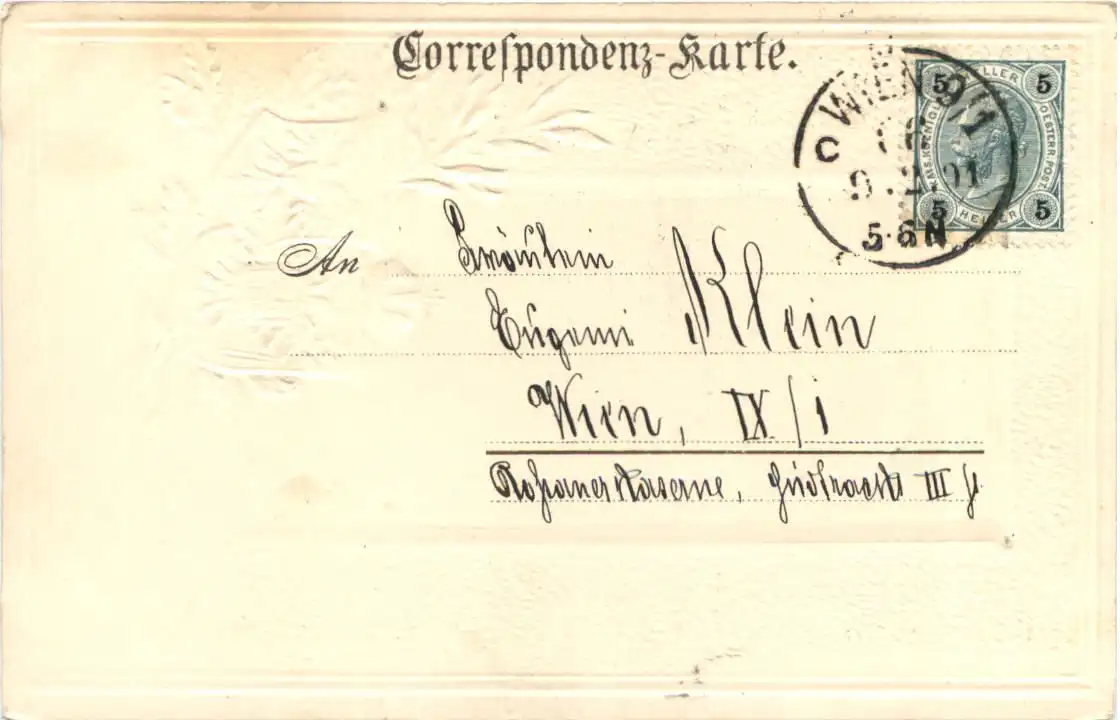 Correspondenz-Karte.
WIEN 9/1
9 2 01
5-6 N
5 HELLER 5
KAIS. KOENIGL. OESTERR. POST.
5 HELLER 5
An Fräulein
Eugenie Klein
Wien, IX/1
Kaserne, III